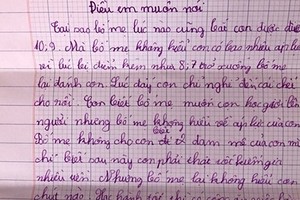 Điều em muốn nói
Tại sao bố mẹ lúc nào cũng bắt con được
10, 9. Mà bố mẹ không hiểu con có bao nhiêu áp lực
vì lúc bị điểm kém như 8,7 trở xuống bố mẹ
lại đánh con. Lúc đấy con chỉ nghĩ đến cái chết
cho rồi. Con biết bố mẹ muốn con học giỏi
người nhưng bố mẹ không hiểu về áp lực của con
Bố mẹ không cho con để ý đam mê của con mà
chỉ biết sau này con phải thác sĩ
nhiều tiền. Nhưng bố mẹ lại không hiểu con
chút nào. Học hành thì